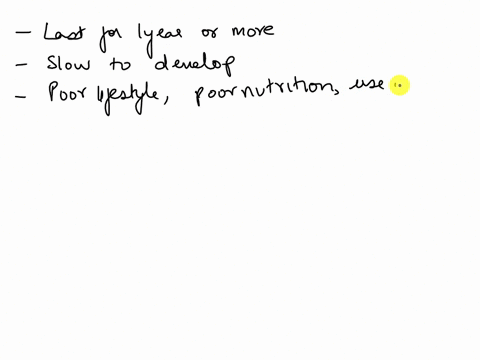 - Last for 1 year or more
- Slow to develop
- Poor lifestyle, poor nutrition, use